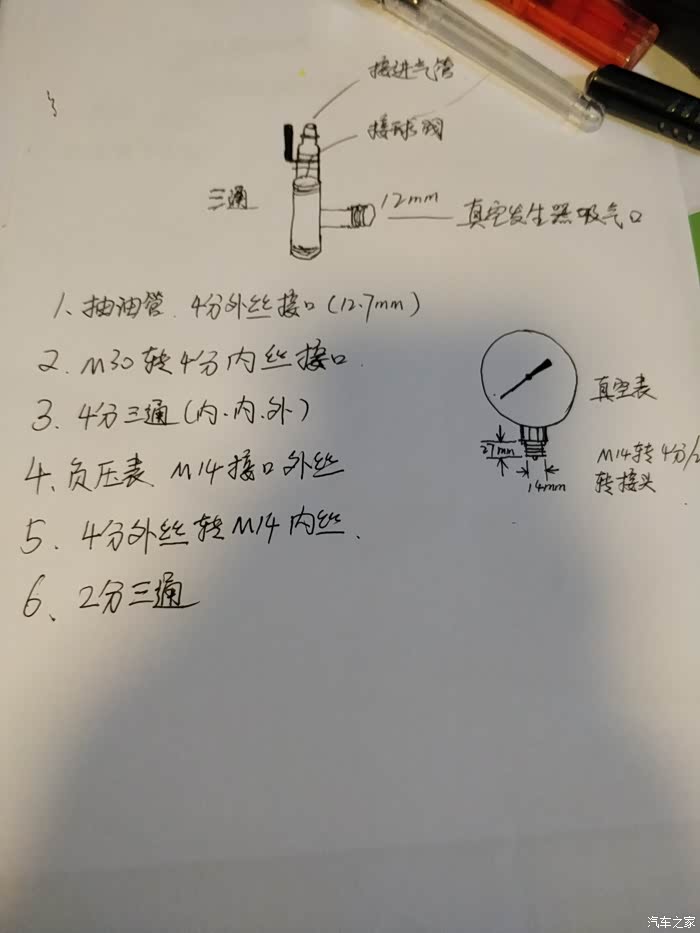 接进气管
接球阀
三通
12mm
真空发生器吸气口
1、抽油管 4分外丝接口(12.7mm)
2. M30转4分内丝接口.
3. 4分三通(内.内.外)
4、负压表 M14接口外丝
5、4分外丝转M14内丝.
6、2分三通
真空表
27mm
14mm
M14转4分/2
转接头
汽车之家